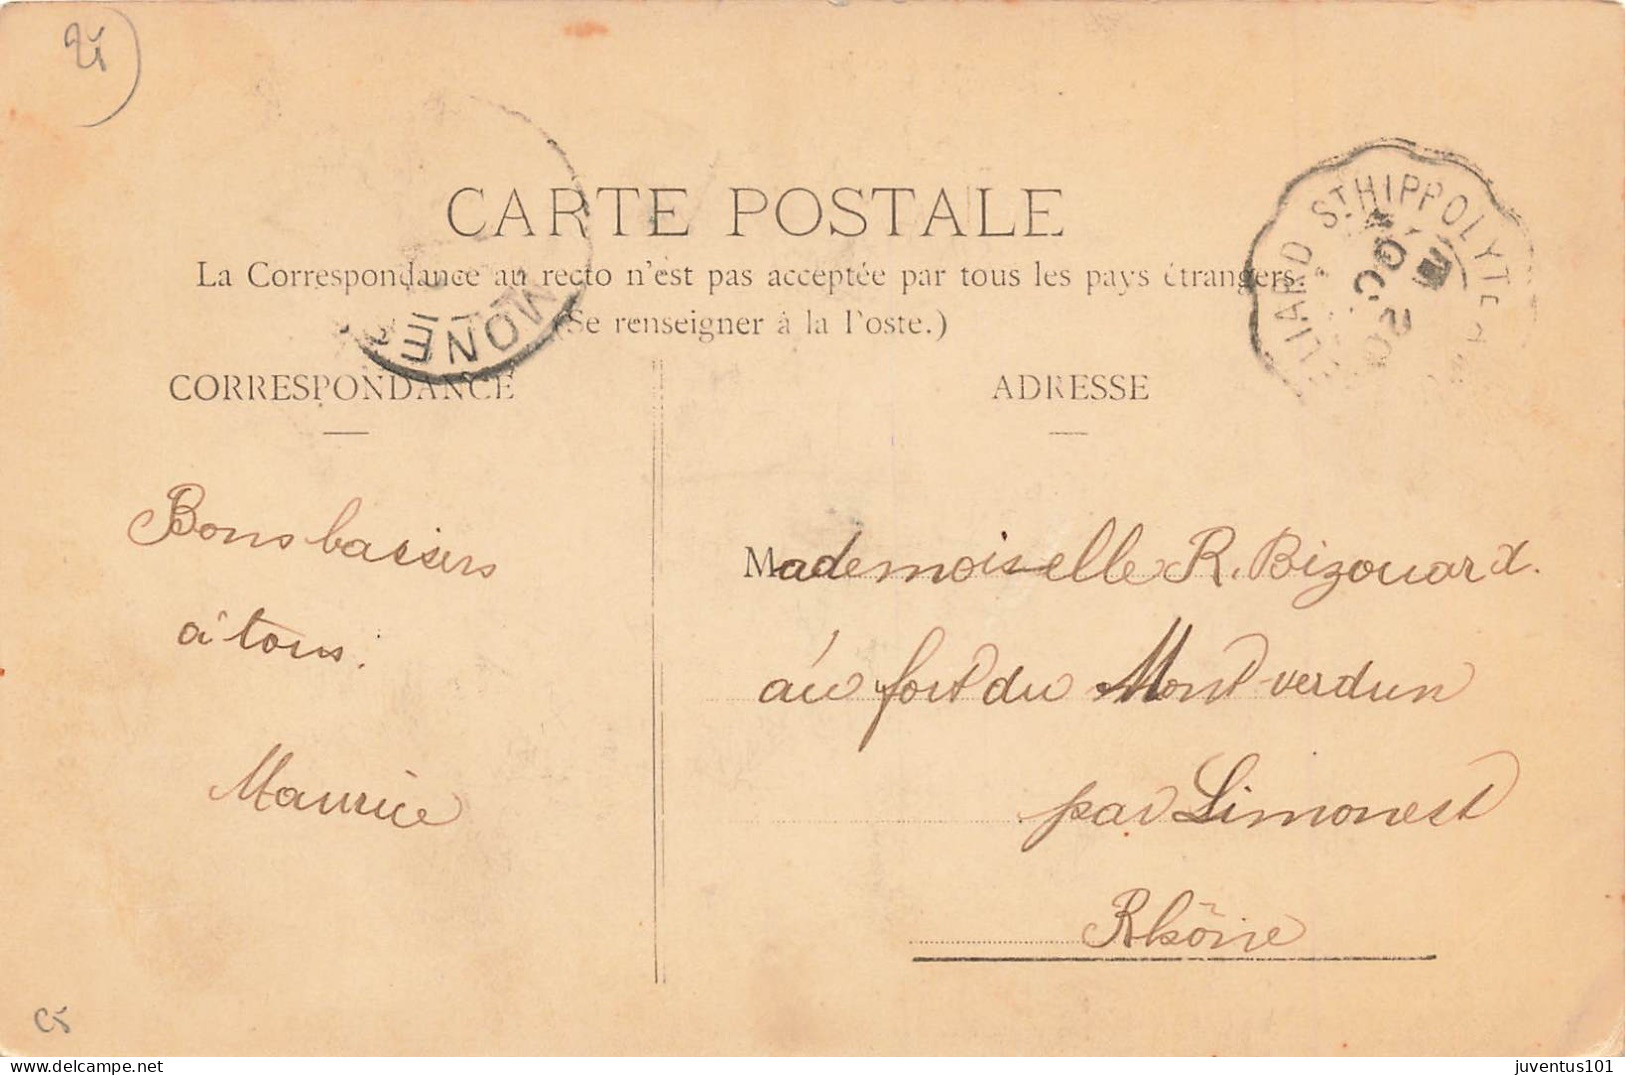 CARTE POSTALE
La Correspondance au recto n'est pas acceptée par tous les pays étrangers.
(Se renseigner à la Poste.)
CORRESPONDANCE
ADRESSE
ST HIPPOLYTE
Bons baisers
à tous.
Maurice
Mademoiselle R. Bizouard.
au fort du Mont-verdun
par Limonest
Rhône
juventus101